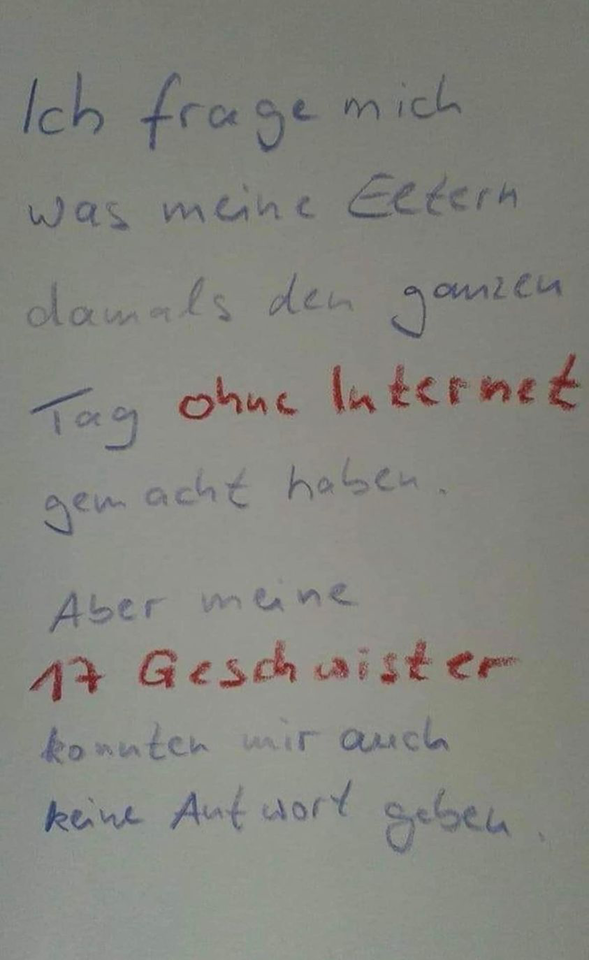 Ich frage mich
was meine Eltern
damals den ganzen
Tag ohne Internet
gemacht haben.
Aber meine
17 Geschwister
konnten mir auch
keine Antwort geben.